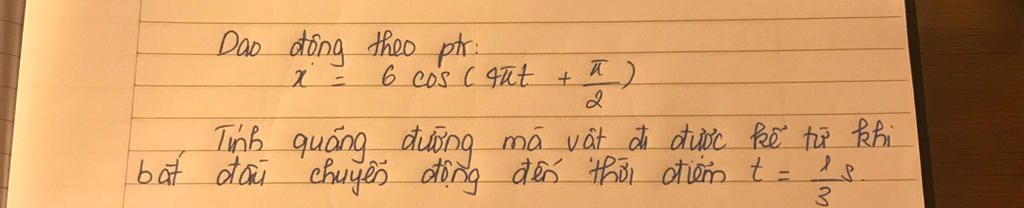 Dao động theo ptr:
x = 6 cos ( 4πt + π/2 )
Tính quãng đường mà vật đi được kể từ khi
bắt đầu chuyển động đến thời điểm t = 1/3 s.